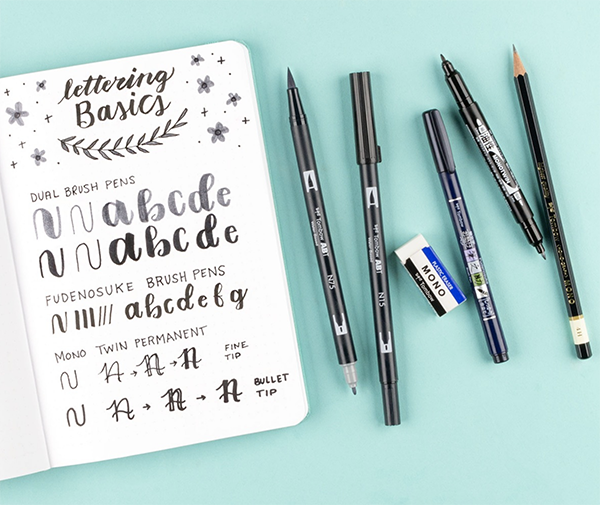 lettering
Basics
DUAL BRUSH PENS
abcde
abcde
FUDENOSUKE BRUSH PENS
abcdefg
MONO TWIN PERMANENT
FINE TIP
BULLET TIP
Tombow ABT
N75
Tombow ABT
N15
PLASTIC ERASER
MONO
Tombow